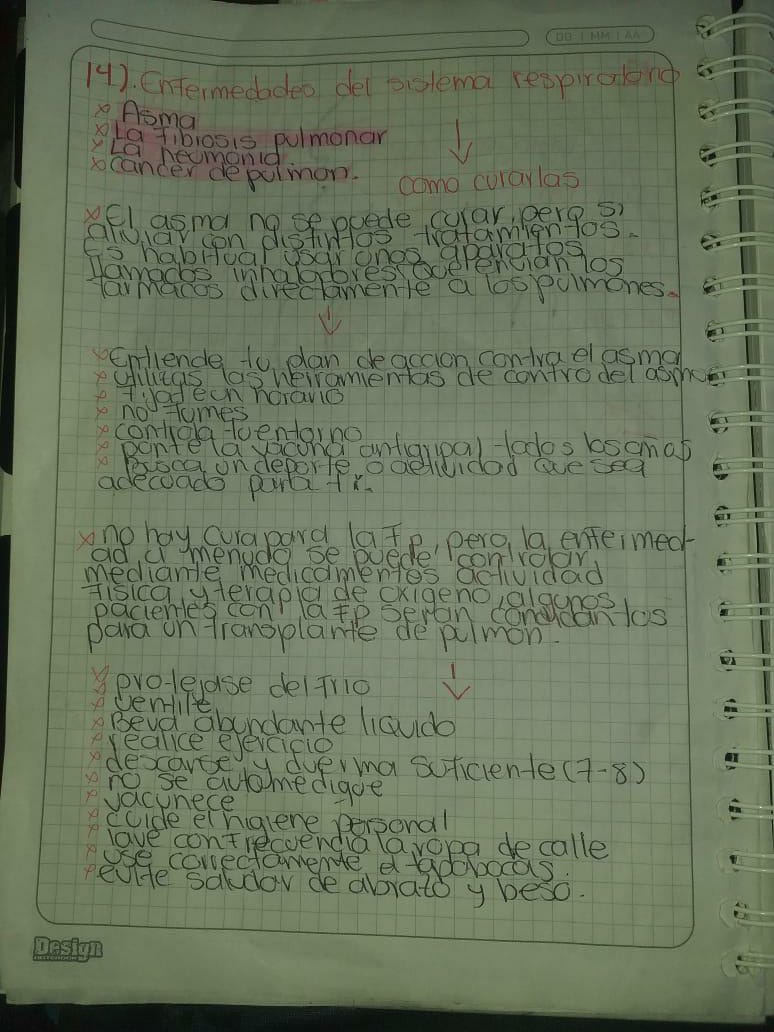 DD | MM | AA
14). Enfermedades del sistema respiratorio
x Asma
x La fibiosis pulmonar
x La neumonia.
x cancer de pulmon.
como curarlas
x El asma no se puede curar, pero si
aliviar con distintos tratamientos.
Es habitual usar unos aparatos
llamados inhaladores que
farmacos directamente a los pulmones.
x Entiende tu plan de accion contra el asma
x utilizas las herramientas de contro del asma
x fijate un horario
x no fumes
x controla tu entorno
x ponte la vacuna antigripal todos los años
x Busca un deporte o actividad que sea
adecuado para ti.
x no hay cura para la fp, pero la enfermed-
ad a menudo se puede controlar
mediante medicamentos actividad
fisica, y terapia de oxigeno, algunos
pacientes con la fp seran
para un transplante de pulmon.
x protejase del frio
x ventile
x Beva abundante liquido
x realice ejercicio
x descanse y duerma suficiente (7-8)
x no se automedique
x vacunece
x cuide el higiene personal
x lave con frecuencia la ropa de calle
x use correctamente el tapabocas.
x evite saludar de abrazo y beso.
Design
NOTEBOOK